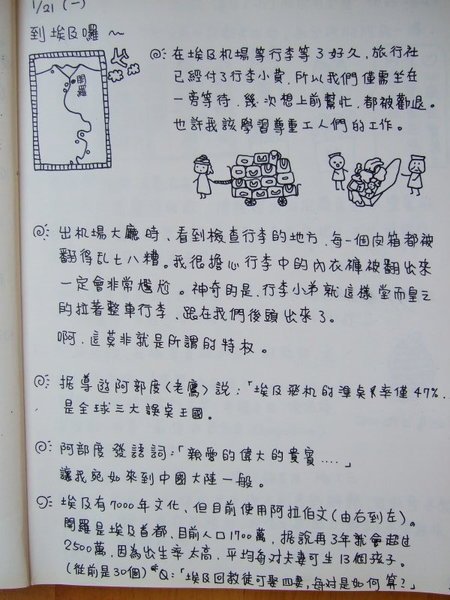 1/21 (一)
到埃及囉～
開羅
在埃及机場等行李等了好久，旅行社
已經付了行李小費，所以我們僅需坐在
一旁等待，幾次想上前幫忙，都被勸退。
也許我該學習尊重工人們的工作。
出机場大廳時，看到檢查行李的地方，每一個皮箱都被
翻得乱七八糟。我很擔心行李中的內衣褲被翻出來
一定會非常尷尬。神奇的是，行李小弟就這樣堂而皇之
的拉著整車行李，跟在我們後頭出來了。
啊，這莫非就是所謂的特权。
据導遊阿部度(老鷹)說：「埃及飛机的準點率僅47%，
是全球三大誤點王國。
阿部度發語詞：「親愛的偉大的貴賓....」
讓我宛如來到中國大陸一般。
埃及有7000年文化，但目前使用阿拉伯文(由右到左)。
開羅是埃及首都，目前人口1700萬，据說再3年就會超过
2500萬，因為出生率太高，平均每对夫妻可生13個孩子。
(從前是30個) *Q：「埃及回教徒可娶四妻，每对是如何算？」